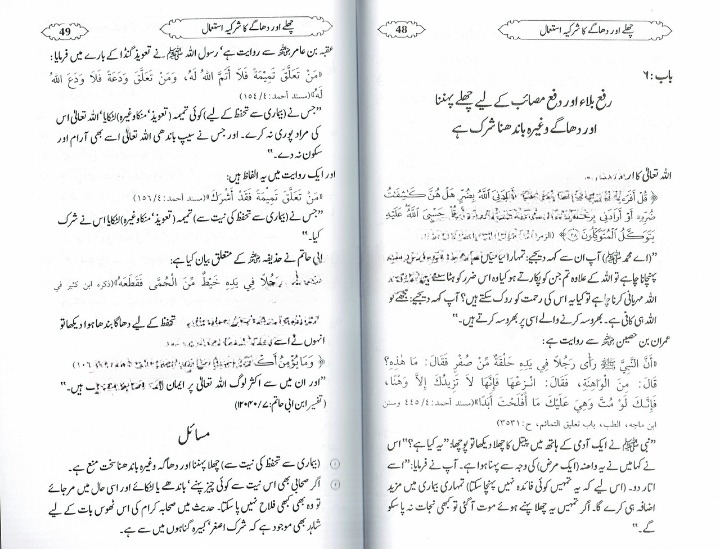 48
چھلے اور دھاگے کا شرکیہ استعمال
باب : ۶
رفع بلاء اور دفع مصائب کے لیے چھلے پہننا
اور دھاگے وغیرہ باندھنا شرک ہے
اللہ تعالیٰ کا
اللَّهُ بِضُرٍّ هَلْ هُنَّ كَاشِفَاتُ
ضُرِّهِ أَوْ أَرَادَنِي حَسْبِيَ اللَّهُ عَلَيْهِ
يَتَوَكَّلُ الْمُتَوَكِّلُونَ
"(اے محمد ﷺ) آپ ان سے کہہ دیجئے: تمہارا
پہنچانا چاہے تو اللہ کے علاوہ تم جن کو پکارتے ہو کیا وہ اس ضرر کو ہٹا
اللہ مہربانی کرنا چاہے تو کیا یہ اس کی رحمت کو روک سکتے ہیں؟ آپ کہہ دیجیے: مجھے تو
اللہ ہی کافی ہے۔ بھروسہ کرنے والے اسی پر بھروسہ کرتے ہیں۔"
عمران بن حصین سے روایت ہے:
«أَنَّ النَّبِيَّ ﷺ رَأَى رَجُلًا فِي يَدِهِ حَلْقَةٌ مِّنْ صُفْرٍ فَقَالَ: مَا هٰذِهِ؟
قَالَ: مِنَ الْوَاهِنَةِ، فَقَالَ: انْزِعْهَا فَإِنَّهَا لَا تَزِيدُكَ إِلَّا وَهْنًا،
فَإِنَّكَ لَوْ مُتَّ وَهِيَ عَلَيْكَ مَا أَفْلَحْتَ أَبَدًا»(مسند أحمد: ٤٤٥/٤ وسنن
ابن ماجه، الطب، باب تعليق التمائم، ح: ٣٥٣١)
"نبی ﷺ نے ایک آدمی کے ہاتھ میں پیتل کا چھلا دیکھا تو پوچھا: "یہ کیا ہے؟" اس
نے کہا میں نے یہ واھنہ (ایک مرض) کی وجہ سے پہنا ہوا ہے۔ آپ نے فرمایا: "اسے
اتار دو۔ (اس لیے کہ یہ تمہیں کوئی فائدہ نہیں پہنچا سکتا) تمہاری بیماری میں مزید
اضافہ ہی کرے گا۔ اگر تمہیں یہ چھلا پہنے ہوئے موت آ گئی تو کبھی نجات نہ پا سکو
گے۔"
49
چھلے اور دھاگے کا شرکیہ استعمال
عقبہ بن عامر سے روایت ہے' رسول اللہ ﷺ نے تعویذ گنڈا کے بارے میں فرمایا:
«مَنْ تَعَلَّقَ تَمِيْمَةً فَلَا أَتَمَّ اللهُ لَهُ، وَمَنْ تَعَلَّقَ وَدَعَةً فَلَا وَدَعَ اللهُ
لَهُ»(مسند أحمد: ١٥٤/٤)
"جس نے (بیماری سے تحفظ کے لیے) کوئی تمیمہ (تعویذ' منکا وغیرہ) لٹکایا' اللہ تعالیٰ اس
کی مراد پوری نہ کرے۔ اور جس نے سیپ باندھی اللہ تعالیٰ اسے بھی آرام اور
سکون نہ دے۔"
اور ایک روایت میں یہ الفاظ ہیں:
«مَنْ تَعَلَّقَ تَمِيْمَةً فَقَدْ أَشْرَكَ»(مسند أحمد: ١٥٦/٤)
"جس نے (بیماری سے تحفظ کی نیت سے) تمیمہ (تعویذ' منکا وغیرہ) لٹکایا اس نے شرک
کیا۔"
ابی حاتم نے حذیفہ کے متعلق بیان کیا ہے:
رَجُلًا فِي يَدِهِ خَيْطٌ مِّنَ الْحُمَّى فَقَطَعَهُ»(ذكره ابن كثير في
تحفظ کے لیے دھاگا بندھا ہوا دیکھا تو
انہوں نے اسے
﴿وَمَا يُؤْمِنُ
"اور ان میں سے اکثر لوگ اللہ تعالیٰ پر ایمان ہیں۔"
(تفسیر ابن ابی حاتم: ۷/ ۱۲۰۴۰)
مسائل
(بیماری سے تحفظ کی نیت سے) چھلا پہننا اور دھاگہ وغیرہ باندھنا سخت منع ہے۔
اگر صحابی بھی اس نیت سے کوئی چیز پہنے' باندھے یا لٹکائے اور اسی حال میں مر جائے
تو وہ بھی کبھی فلاح نہیں پا سکتا۔ حدیث میں صحابہ کرام کی اس ٹھوس بات کے لیے
شاہد بھی موجود ہے کہ شرک اصغر' کبیرہ گناہوں میں سے ہے۔